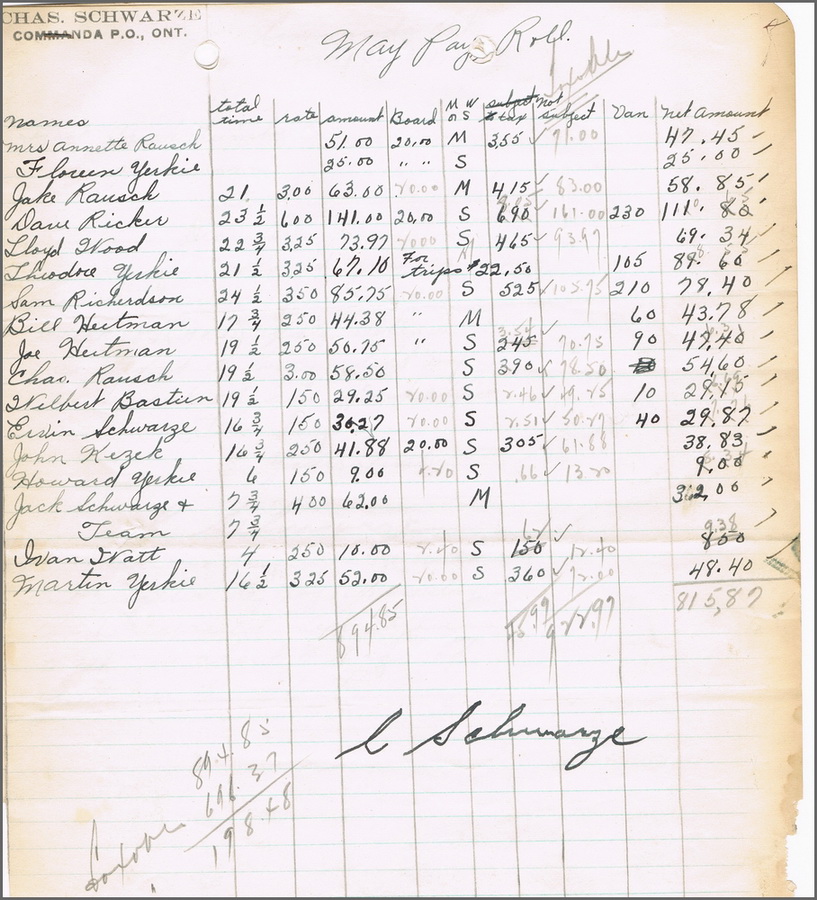 CHAS. SCHWARZE
COMMANDA P.O., ONT.
May Pay Roll.
Taxable
names total time rate amount Board M or S W subject to tax not subject Van net Amount
mrs Annette Rausch 51.00 20.00 M 3.55 71.00 47.45
Floreen Yerkie 25.00 " " S 25.00
Jake Rausch 21 3.00 63.00 20.00 M 415 83.00 58.85
Dave Ricker 23 1/2 600 141.00 20.00 S 690 161.00 230 111.80
Lloyd Wood 22 3/4 3.25 73.97 2000 S 465 93.97 69.34
Theodore Yerkie 21 1/2 325 67.10 For trips # 22.50 105 60
Sam Richerdson 24 1/2 350 85.75 20.00 S 525 105.75 210 78.40
Bill Heitman 17 3/4 250 44.38 " M 60 43.78
Joe Heitman 19 1/2 250 50.75 " S 245 70.75 90 47.40
Chas. Rausch 19 1/2 3.00 58.50 S 390 78.50 54.60
Wilbert Bastien 19 1/2 150 29.25 20.00 S 2.46 49.25 10
Ervin Schwarze 16 3/4 150 30.27 20.00 S 2.51 50.27 40 29.87
John Kezek 16 3/4 250 41.88 20.00 S 305 61.88 38.83
Howard Yerkie 6 150 9.00 4.20 S .66 13.20 9.00
Jack Schwarze + 7 3/4 400 62.00 M 62.00
Team 7 3/4
Ivan Watt 4 250 10.00 2.40 S 150 12.40 9.38 850
Martin Yerkie 16 1/2 325 52.00 20.00 S 360 72.00 48.40
894.85 922.97 815.87
C Schwarze
894.85
696.37
198.48
Taxable